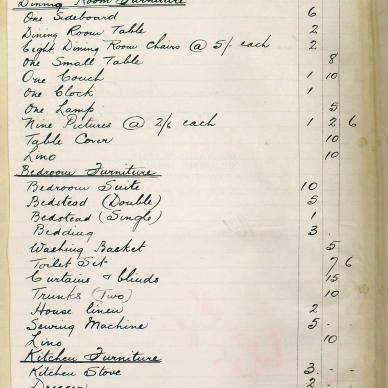 Dining Room Furniture
One Sideboard 6
Dining Room Table 2
Eight Dining Room Chairs @ 5/- each 2
One Small Table 8
One Couch 1 10
One Clock 1
One Lamp 5
Nine Pictures @ 2/6 each 1 2 6
Table Cover 10
Lino 10
Bedroom Furniture
Bedroom Suite 10
Bedstead (Double) 5
Bedstead (Single) 1
Bedding 3 .
Washing Basket 5
Toilet Set 7 6
Curtains & blinds 15
Trunks (Two) 10
House linen 2
Sewing Machine 5 .
Lino 10
Kitchen Furniture
Kitchen Stove 3 . - -
Dresser 2 - -